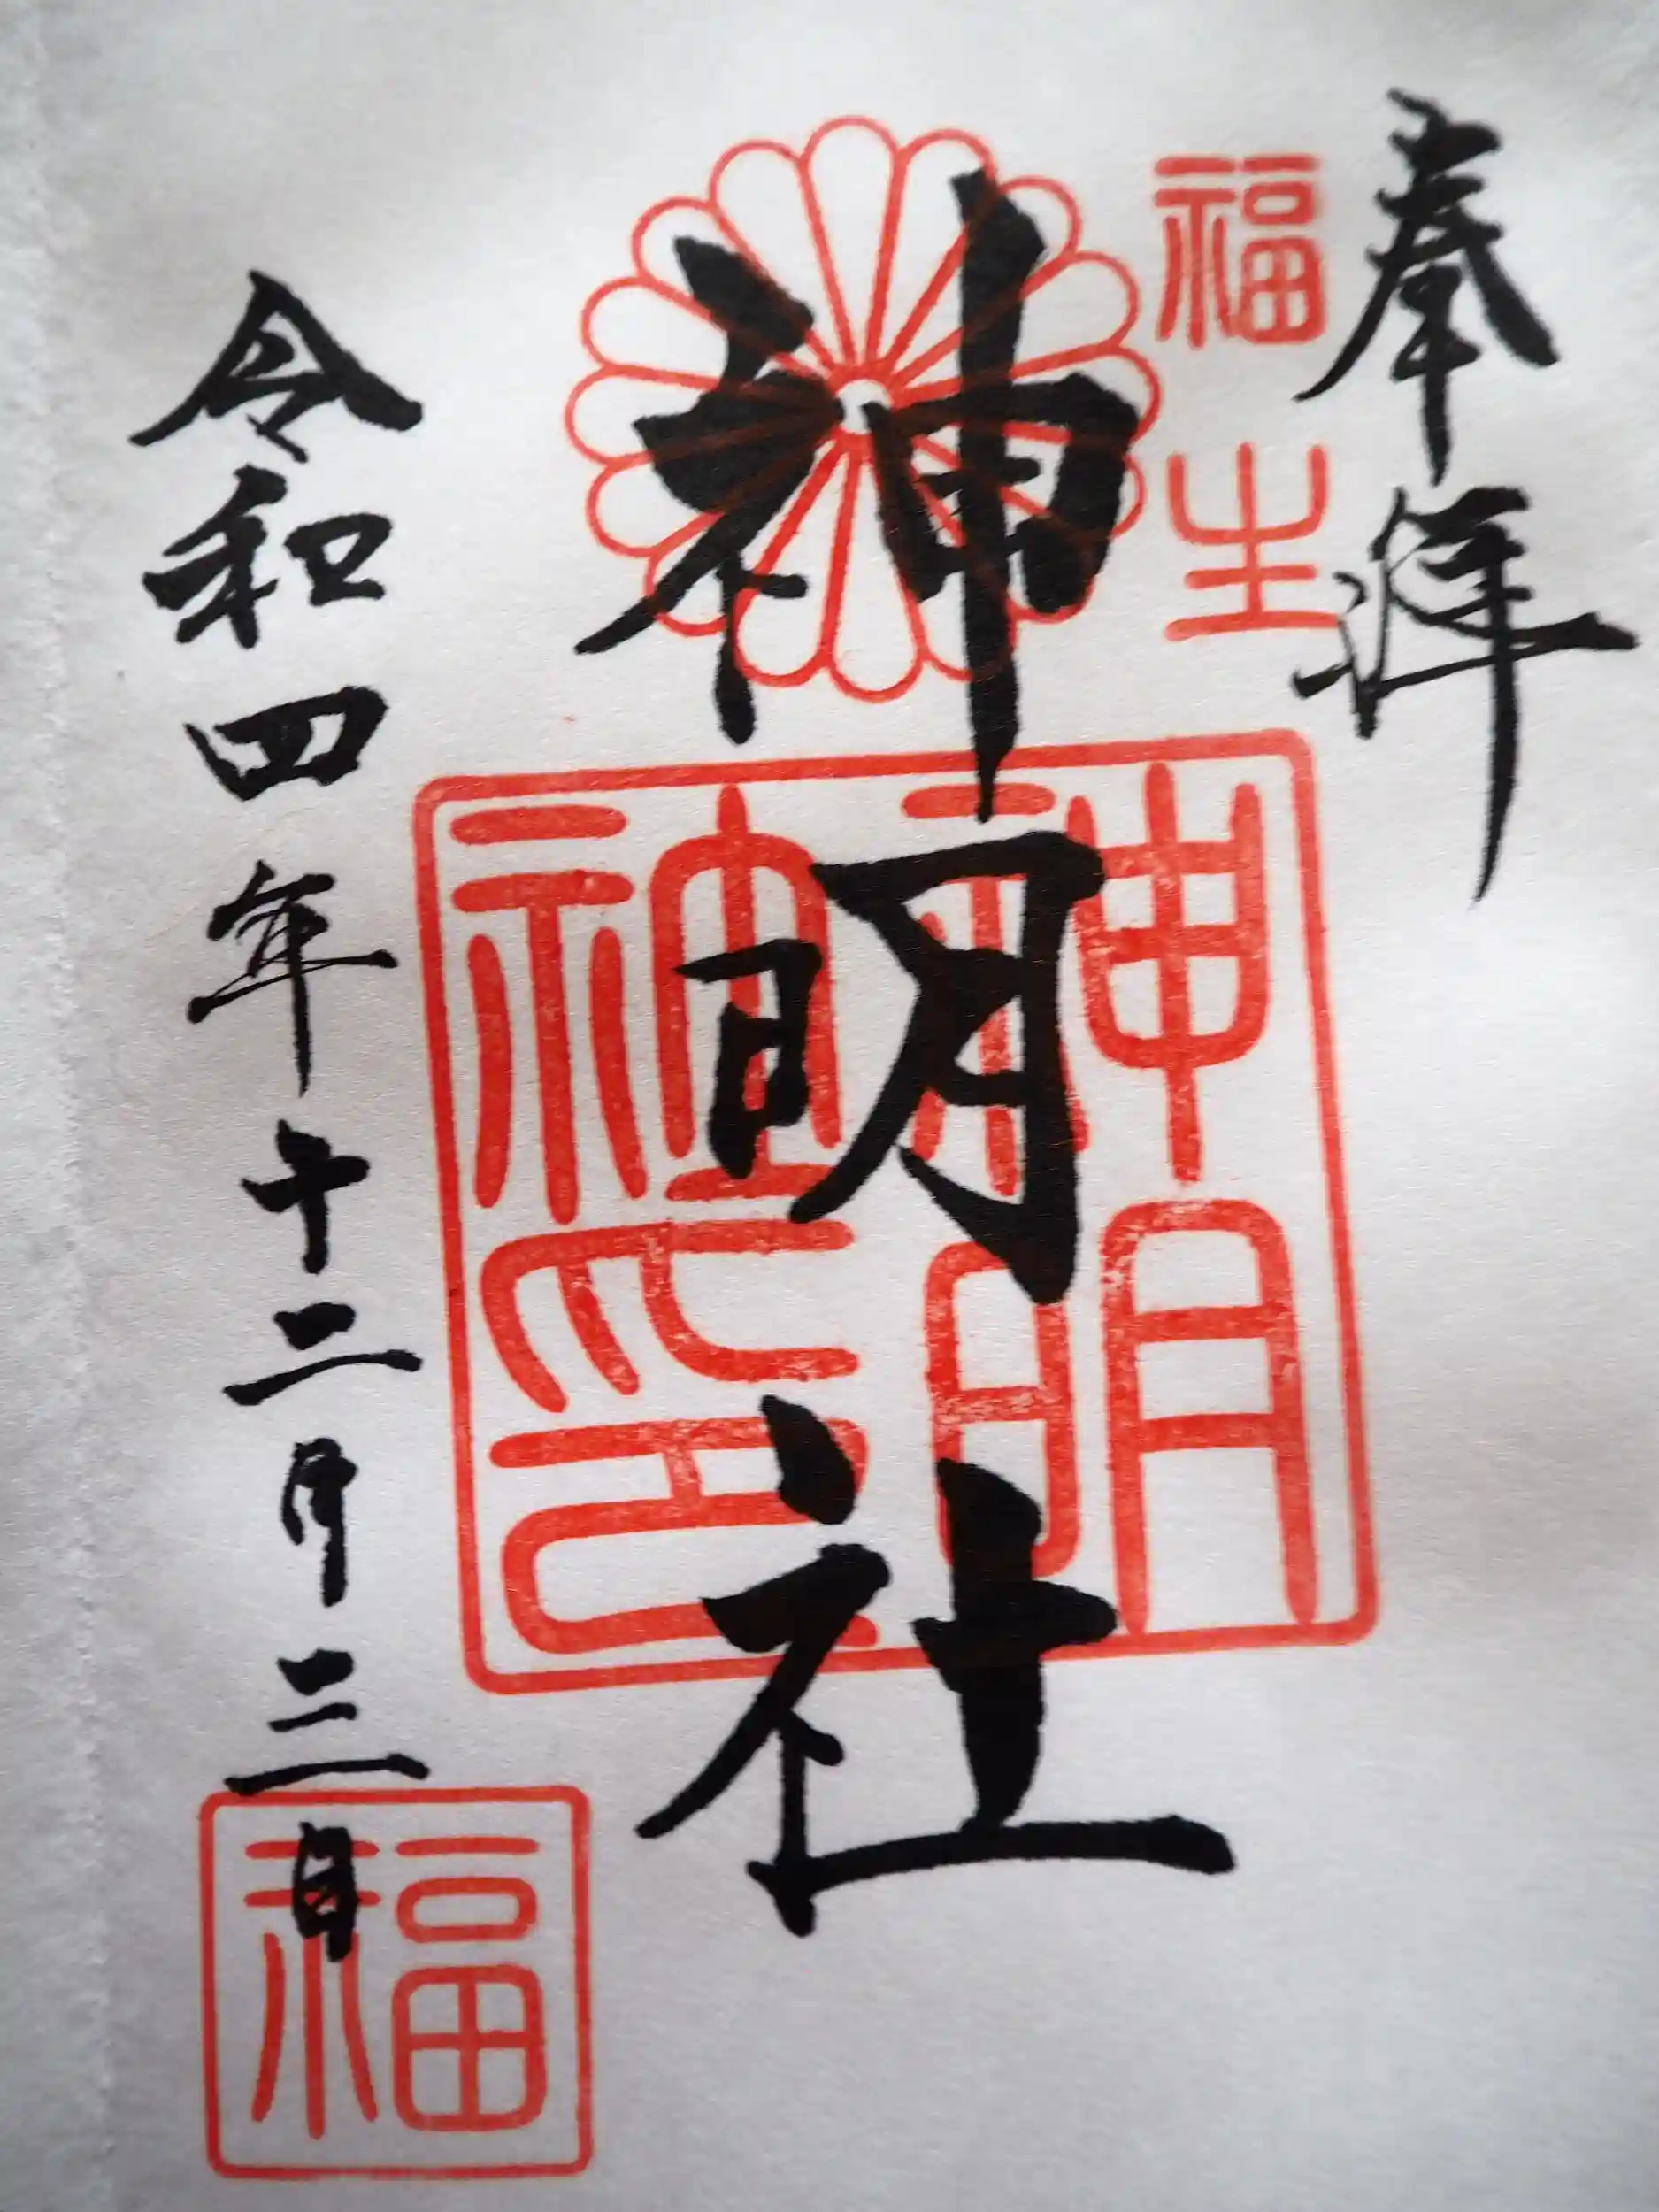 奉拝
福生
神明社
神明
神社
印
令和四年十二月三日
福